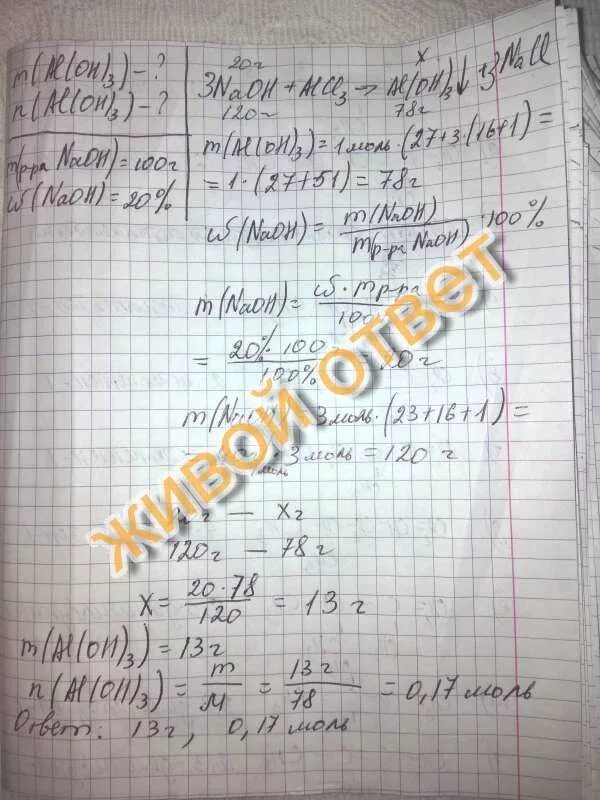 m(Al(OH)₃) - ?
n(Al(OH)₃) - ?
m(р-ра NaOH) = 100г
ω(NaOH) = 20%
20г x
3NaOH + AlCl₃ → Al(OH)₃↓ + 3NaCl
120г 78г
m(Al(OH)₃) = 1 моль · (27+3·(16+1) =
= 1 · (27+51) = 78г
ω(NaOH) = m(NaOH) / m р-ра NaOH · 100%
m(NaOH) = ω · m р-ра / 100
= 20% · 100 / 100% = 20 г
3 моль · (23+16+1) =
3 моль = 120 г
г — xг
120г — 78г
x = 20·78 / 120 = 13 г
m(Al(OH)₃) = 13г
n(Al(OH)₃) = m / M = 13г / 78 = 0,17 моль
Ответ: 13г, 0,17 моль
ЖИВОЙ ОТВЕТ